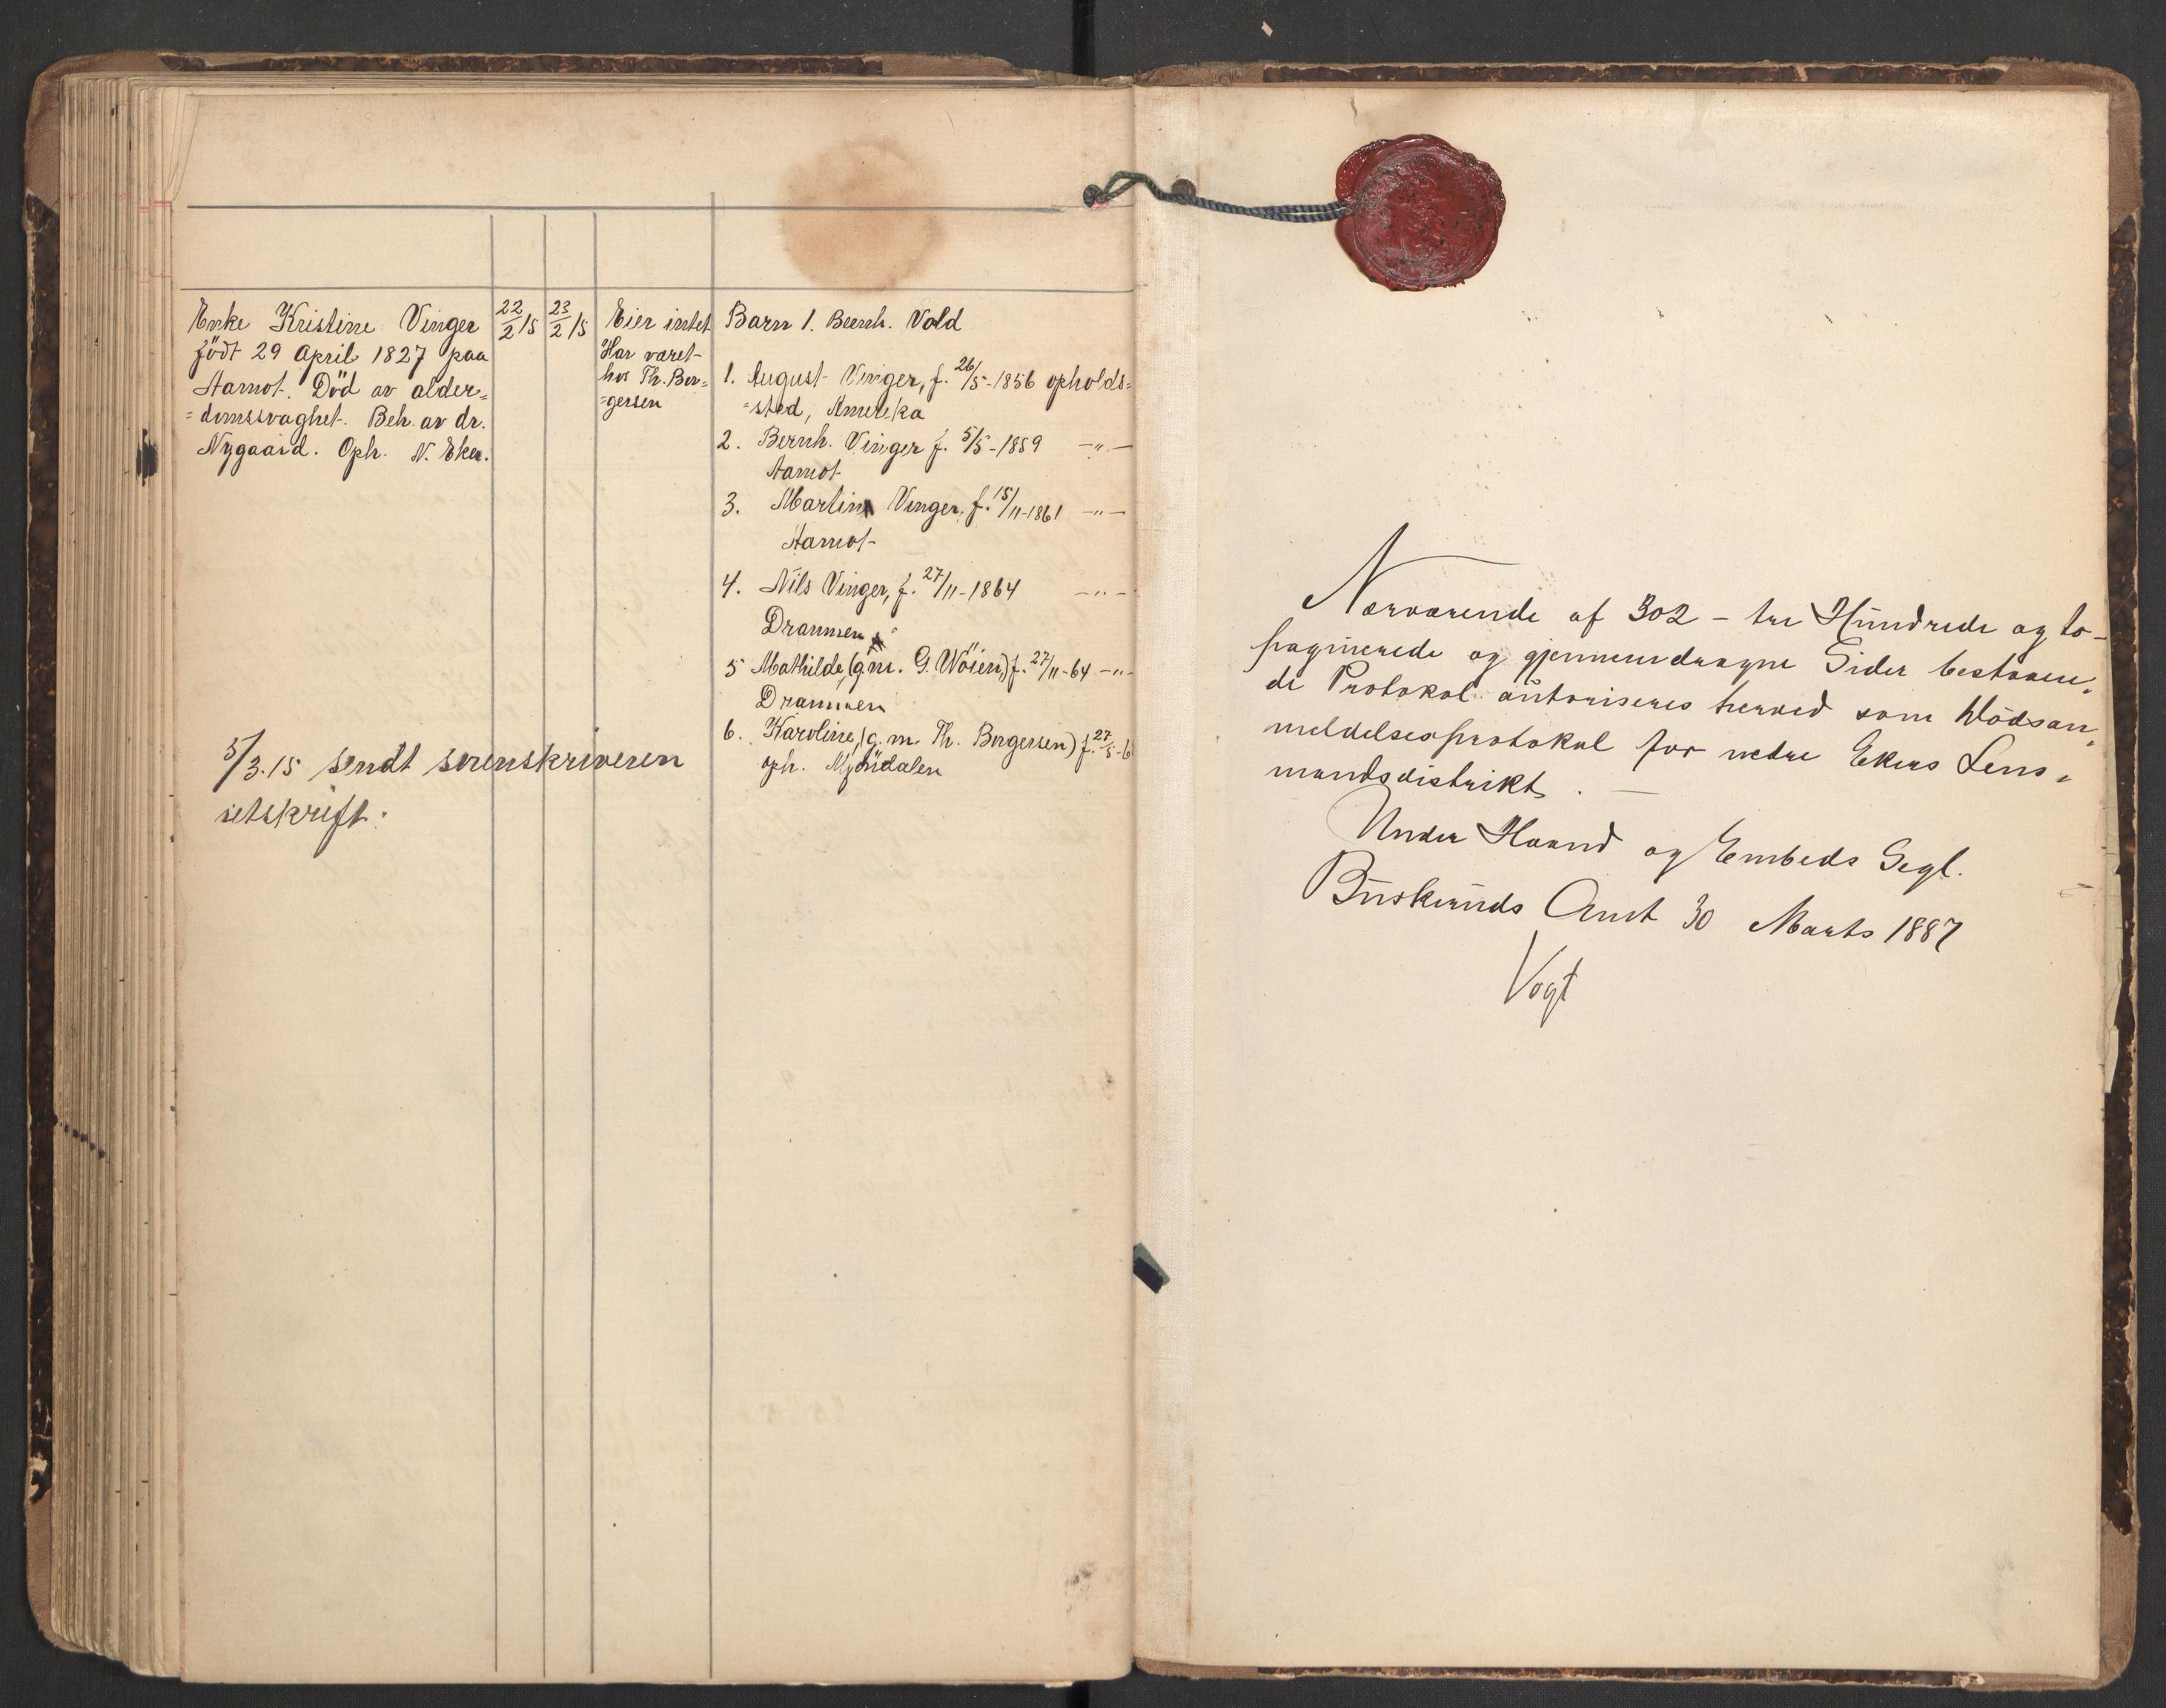 Enke Kristine Vinger
født 29 April 1827 paa
Aamot. Död av alder=
=domssvaghet. Beh. av dr.
Nygaard. Oph. N. Eker.
22/2 15
23/2 15
Eier intet
Har været
hos Th. Bor=
=gersen
Barn 1. Bernh. Vold
1. August Vinger, f. 26/5-1856 opholds=
=sted, Amerika
2. Bernh. Vinger f. 5/5-1859 -"-
Aamot
3. Martin Vinger, f. 15/11-1861 -"-
Aamot
4. Nils Vinger, f. 27/11-1864 -"-
Drammen
5 Mathilde, (g.m. G. Wöien,) f. 27/11-64 -"-
Drammen
6. Karoline, (g.m. Th. Borgersen) f. 27/5-6
oph. Mjöndalen
5/3.15 sendt sorenskriveren
utskrift.
Nærværende af 302 - tre Hundrede og to -
paginerede og gjennemdragne Sider bestaaen,
de Protokol autoriseres herved som Dödsan,
meldelsesprotokol for nedre Ekers Lens,
mandsdistrikt. —
Under Haand og Embeds Segl.
Buskeruds Amt 30 Marts 1887
Vogt